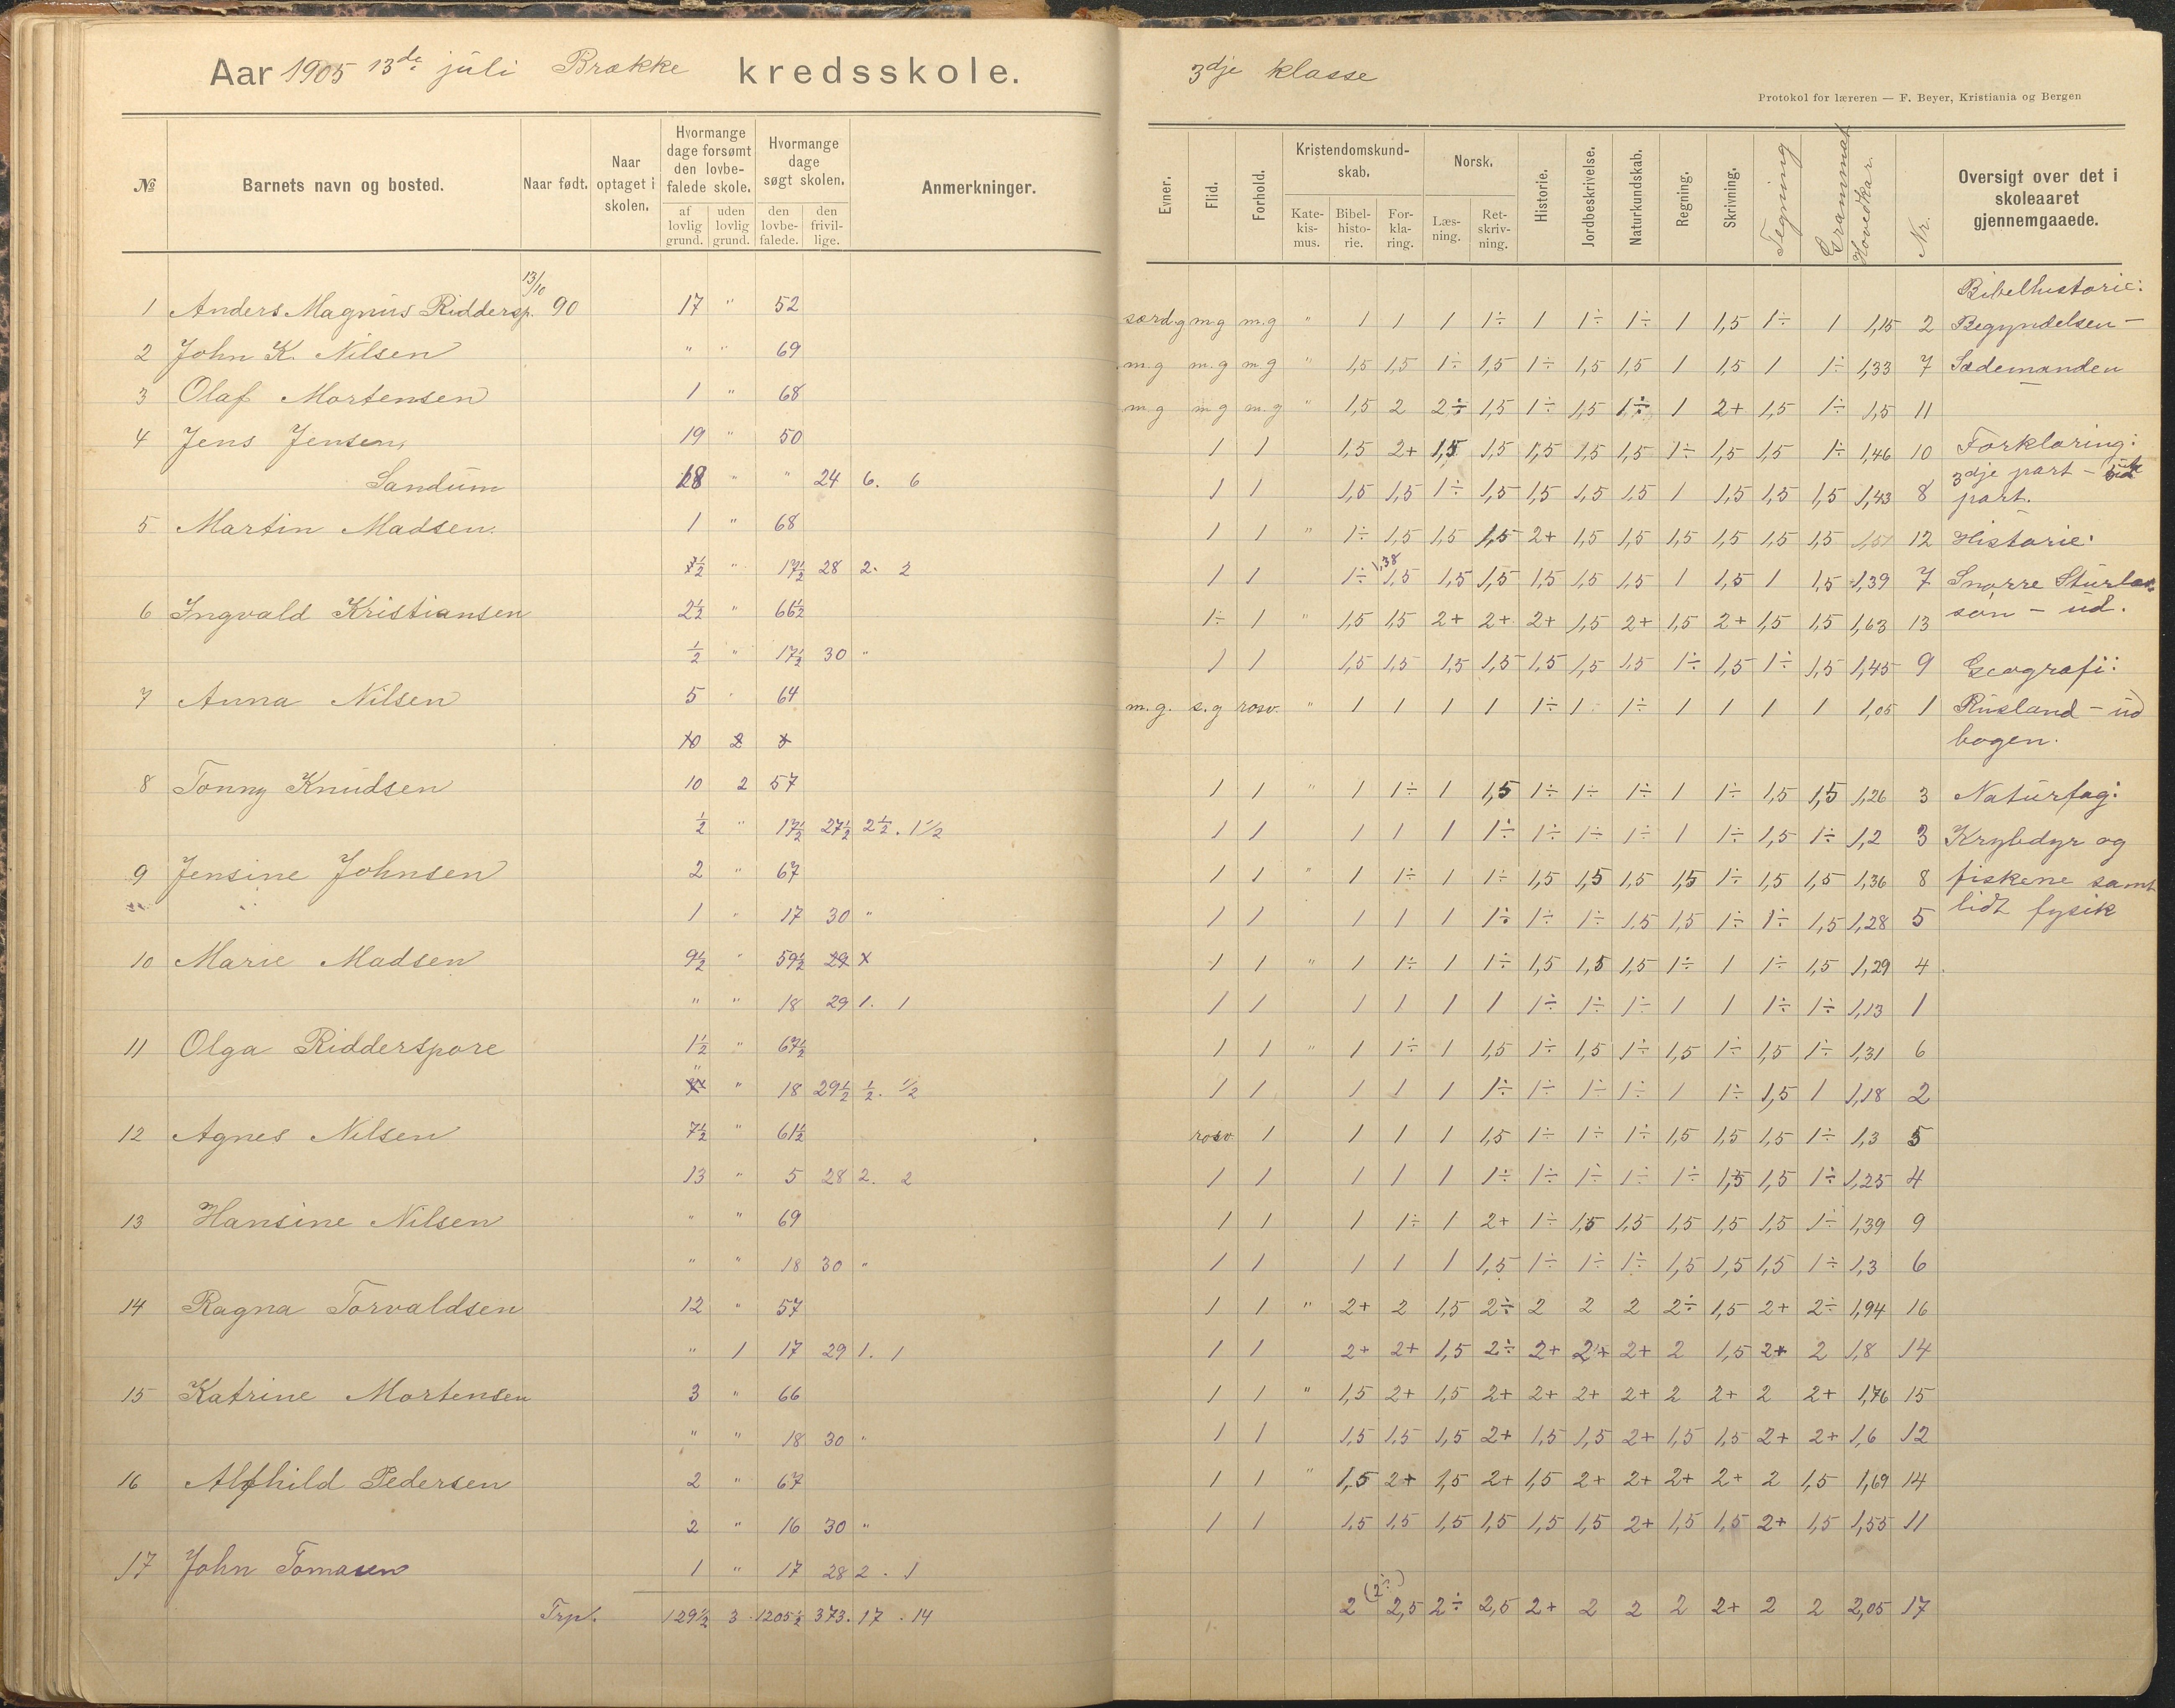 Aar 1905 13de juli Brække kredsskole.
№ Barnets navn og bosted. Naar født. Naar optaget i skolen. Hvormange dage forsømt den lovbefalede skole. Hvormange dage søgt skolen. Anmerkninger.
af lovlig grund. uden lovlig grund. den lovbefalede. den frivillige.
1 Anders Magnus Riddersp. 13/10 90 17 " 52
2 John K. Nilsen " " 69
3 Olaf Mortensen 1 " 68
4 Jens Jensen, 19 " 50
Sandum 18 " " 24 6. 6
5 Martin Madsen. 1 " 68
½ " 17½ 28 2. 2
6 Ingvald Kristiansen 2½ " 66½
½ " 17½ 30 "
7 Anna Nilsen 5 " 64
10 2
8 Tonny Knudsen 10 2 57
½ " 17½ 27½ 2½. 1½
9 Jensine Johnsen 2 " 67
1 " 17 30 "
10 Marie Madsen 9½ " 59½ 29 x
" " 18 29 1. 1
11 Olga Ridderspore 1½ " 67½
" " 18 29½ ½. ½
12 Agnes Nilsen 7½ " 61½
13 " 5 28 2. 2
13 Hansine Nilsen " " 69
" " 18 30 "
14 Ragna Torvaldsen 12 " 57
" 1 17 29 1. 1
15 Katrine Mortensen 3 " 66
" " 18 30 "
16 Alfhild Pedersen 2 " 67
2 " 16 30 "
17 John Tomasen 1 " 17 28 2. 1
Trp. 129½ 3 1205½ 373. 17. 14
3dje klasse
Protokol for læreren — F. Beyer, Kristiania og Bergen
Evner. Flid. Forhold. Kristendomskundskab. Norsk. Historie. Jordbeskrivelse. Naturkundskab. Regning. Skrivning. Tegning Grammat. Hovedkar. Nr. Oversigt over det i skoleaaret gjennemgaaede.
Katekismus. Bibelhistorie. Forklaring. Læsning. Retskrivning.
Bibelhistorie:
særd.g m.g m.g " 1 1 1 1÷ 1 1÷ 1÷ 1 1,5 1÷ 1 1,15 2 Begyndelsen –
m.g m.g m.g " 1,5 1,5 1÷ 1,5 1÷ 1,5 1,5 1 1,5 1 1÷ 1,33 7 Sædemanden
m.g m.g m.g " 1,5 2 2÷ 1,5 1÷ 1,5 1÷ 1 2+ 1,5 1÷ 1,5 11
1 1 1,5 2+ 1,5 1,5 1,5 1,5 1,5 1÷ 1,5 1,5 1÷ 1,46 10 Forklaring:
3dje part –
1 1 1,5 1,5 1÷ 1,5 1,5 1,5 1,5 1 1,5 1,5 1,5 1,43 8 part.
1 1 " 1÷ 1,5 1,5 1,5 2+ 1,5 1,5 1,5 1,5 1,5 1,5 1,51 12 Historie:
1,38
1 1 1÷ 1,5 1,5 1,5 1,5 1,5 1,5 1 1,5 1 1,5 1,39 7 Snorre Sturlas
1÷ 1 " 1,5 1,5 2+ 2+ 2+ 1,5 2+ 1,5 2+ 1,5 1,5 1,63 13 søn – ud.
1 1 1,5 1,5 1,5 1,5 1,5 1,5 1,5 1÷ 1,5 1÷ 1,5 1,45 9 Geografi:
m.g. s.g rosv. " 1 1 1 1 1÷ 1 1÷ 1 1 1 1 1,05 1 Rusland – ud
bogen.
1 1 " 1 1÷ 1 1,5 1÷ 1÷ 1÷ 1 1÷ 1,5 1,5 1,26 3 Naturfag:
1 1 1 1 1 1÷ 1÷ 1÷ 1÷ 1 1÷ 1,5 1÷ 1,2 3 Krybdyr og
1 1 " 1 1÷ 1 1÷ 1,5 1,5 1,5 1,5 1÷ 1,5 1,5 1,36 8 fiskene samt
1 1 1 1 1 1÷ 1÷ 1÷ 1,5 1,5 1÷ 1÷ 1,5 1,28 5 lidt fysik
1 1 " 1 1÷ 1 1÷ 1,5 1,5 1,5 1÷ 1 1÷ 1,5 1,29 4
1 1 1 1 1 1 1÷ 1÷ 1÷ 1 1 1÷ 1÷ 1,13 1
1 1 " 1 1÷ 1 1,5 1÷ 1,5 1÷ 1,5 1÷ 1,5 1÷ 1,31 6
1 1 1 1 1 1÷ 1÷ 1÷ 1÷ 1 1÷ 1,5 1 1,18 2
rosv 1 1 1 1 1,5 1÷ 1÷ 1÷ 1,5 1,5 1,5 1÷ 1,3 5
1 1 1 1 1 1÷ 1÷ 1÷ 1÷ 1÷ 1,5 1,5 1÷ 1,25 4
1 1 1 1÷ 1 2+ 1÷ 1,5 1,5 1,5 1,5 1,5 1÷ 1,39 9
1 1 1 1 1 1,5 1÷ 1÷ 1÷ 1,5 1,5 1,5 1÷ 1,3 6
1 1 " 2+ 2 1,5 2÷ 2 2 2 2÷ 1,5 2+ 2÷ 1,94 16
1 1 2+ 2+ 1,5 2÷ 2+ 2+ 2+ 2 1,5 2+ 2 1,8 14
1 1 " 1,5 2+ 1,5 2+ 2+ 2+ 2+ 2 2+ 2 2+ 1,76 15
1 1 1,5 1,5 1,5 2+ 1,5 1,5 2+ 1,5 1,5 2+ 2+ 1,6 12
1 1 " 1,5 2+ 1,5 2+ 1,5 2+ 2+ 2+ 2+ 2 1,5 1,69 14
1 1 1,5 1,5 1,5 1,5 1,5 1,5 2+ 1,5 1,5 2+ 1,5 1,55 11
2 (2÷) 2,5 2÷ 2,5 2+ 2 2 2 2+ 2 2 2,05 17